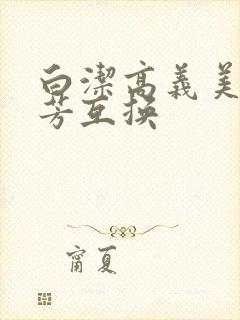 白潔高義美
芳互換
甯夏